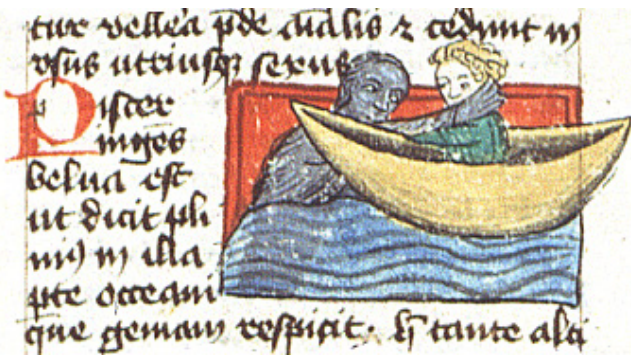 tur vellea p̄de āialis ⁊ cedunt in
vsus utriusqꝫ sexus
Pister
inges
belua est
ut dicit pli
niꝰ in illa
ꝑte occeani
que gemam respicit. h̄ tante alti